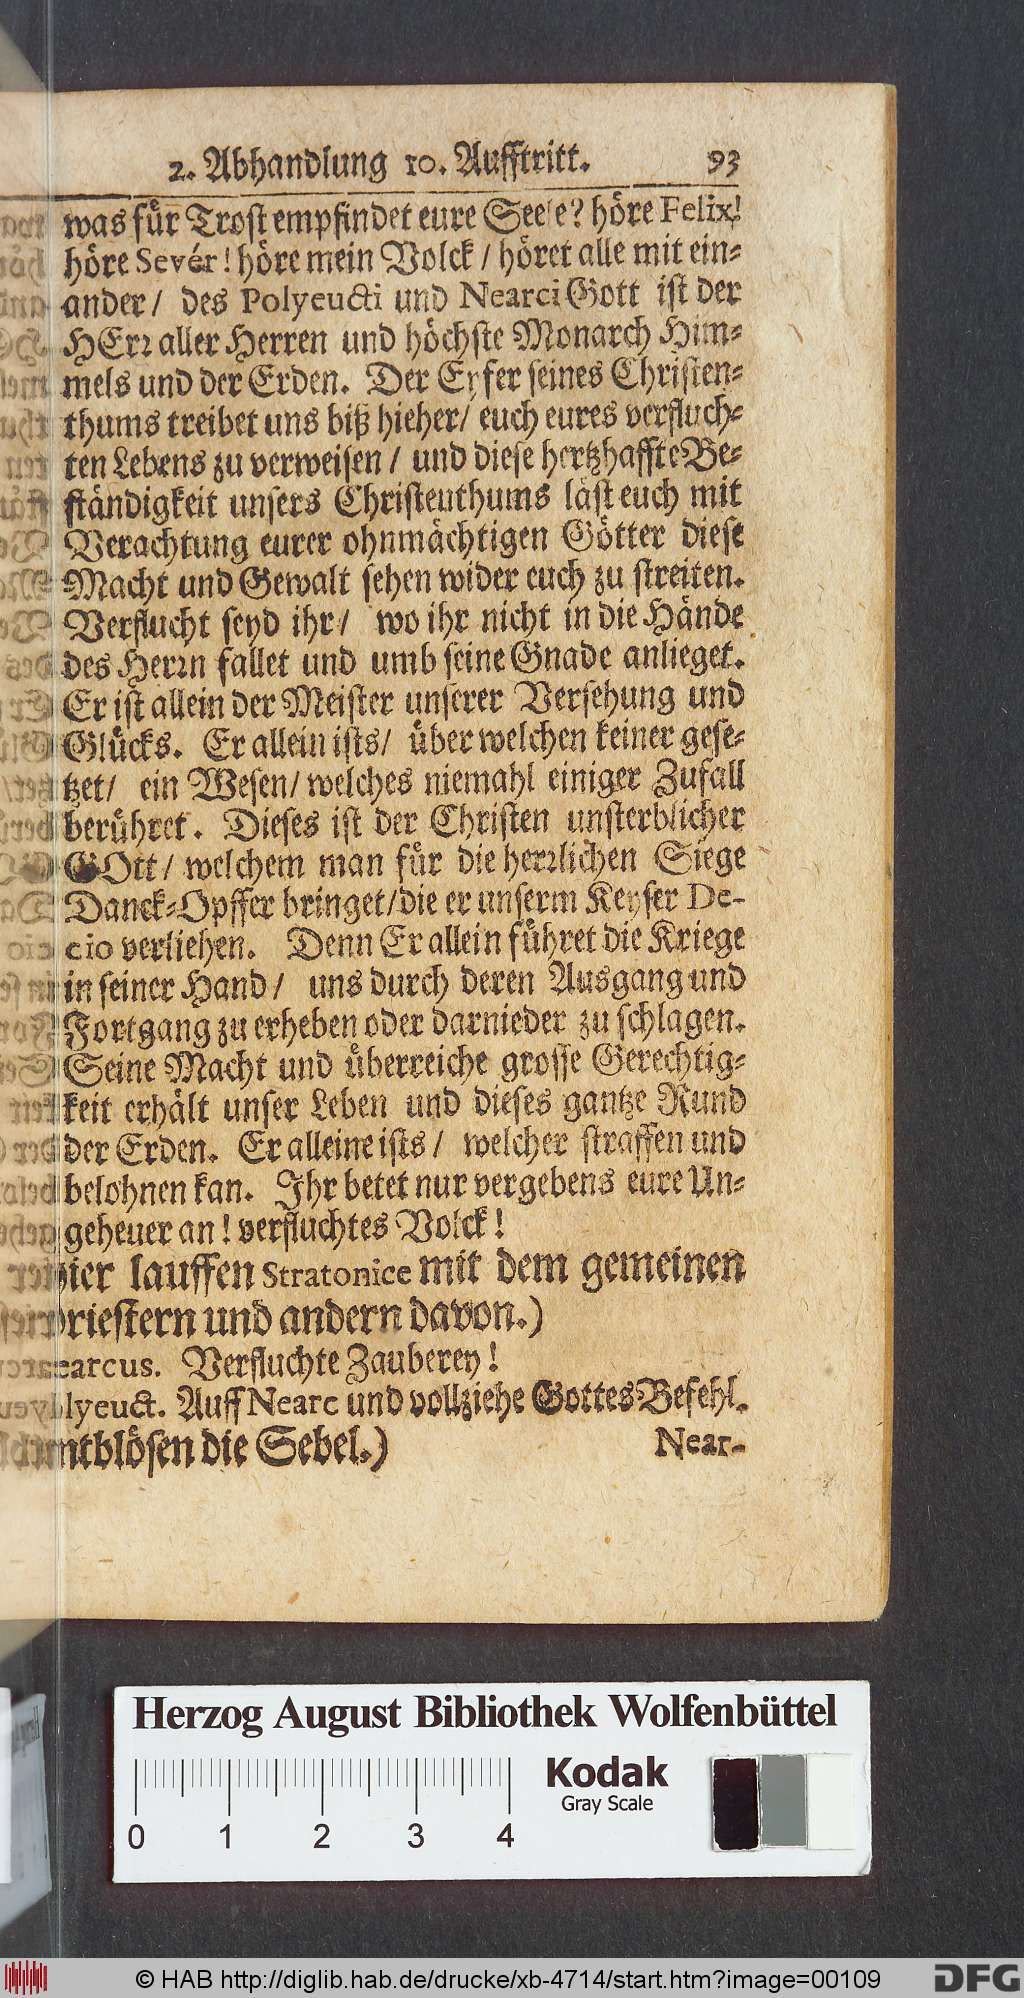 2. Abhandlung 10. Aufftritt. 93
was für Trost empfindet eure Seele? höre Felix!
höre Sevér! höre mein Volck / höret alle mit ein⸗
ander / des Polyeucti und Nearci Gott ist der
HErr aller Herren und höchste Monarch Him⸗
mels und der Erden. Der Eyfer seines Christen⸗
thums treibet uns biß hieher / euch eures verfluch⸗
ten Lebens zu verweisen / und diese hertzhaffte Be⸗
ständigkeit unsers Christeuthums läst euch mit
Verachtung eurer ohnmächtigen Götter diese
Macht und Gewalt sehen wider euch zu streiten.
Verflucht seyd ihr / wo ihr nicht in die Hände
des Herrn fallet und umb seine Gnade anlieget.
Er ist allein der Meister unserer Versehung und
Glücks. Er allein ists / über welchen keiner gese⸗
tzet / ein Wesen / welches niemahl einiger Zufall
berühret. Dieses ist der Christen unsterblicher
GOtt / welchem man für die herrlichen Siege
Danck⸗Opffer bringet / die er unserm Keyser De-
cio verliehen. Denn Er allein führet die Kriege
in seiner Hand / uns durch deren Ausgang und
Fortgang zu erheben oder darnieder zu schlagen.
Seine Macht und überreiche grosse Gerechtig⸗
keit erhält unser Leben und dieses gantze Rund
der Erden. Er alleine ists / welcher straffen und
belohnen kan. Ihr betet nur vergebens eure Un⸗
geheuer an! verfluchtes Volck!
ier lauffen Stratonice mit dem gemeinen
riestern und andern davon.)
earcus. Verfluchte Zauberey!
lyeuct. Auff Nearc und vollziehe Gottes Befehl.
ntblösen die Sebel.) Near-
Herzog August Bibliothek Wolfenbüttel
Kodak
Gray Scale
0 1 2 3 4
© HAB http://diglib.hab.de/drucke/xb-4714/start.htm?image=00109
DFG